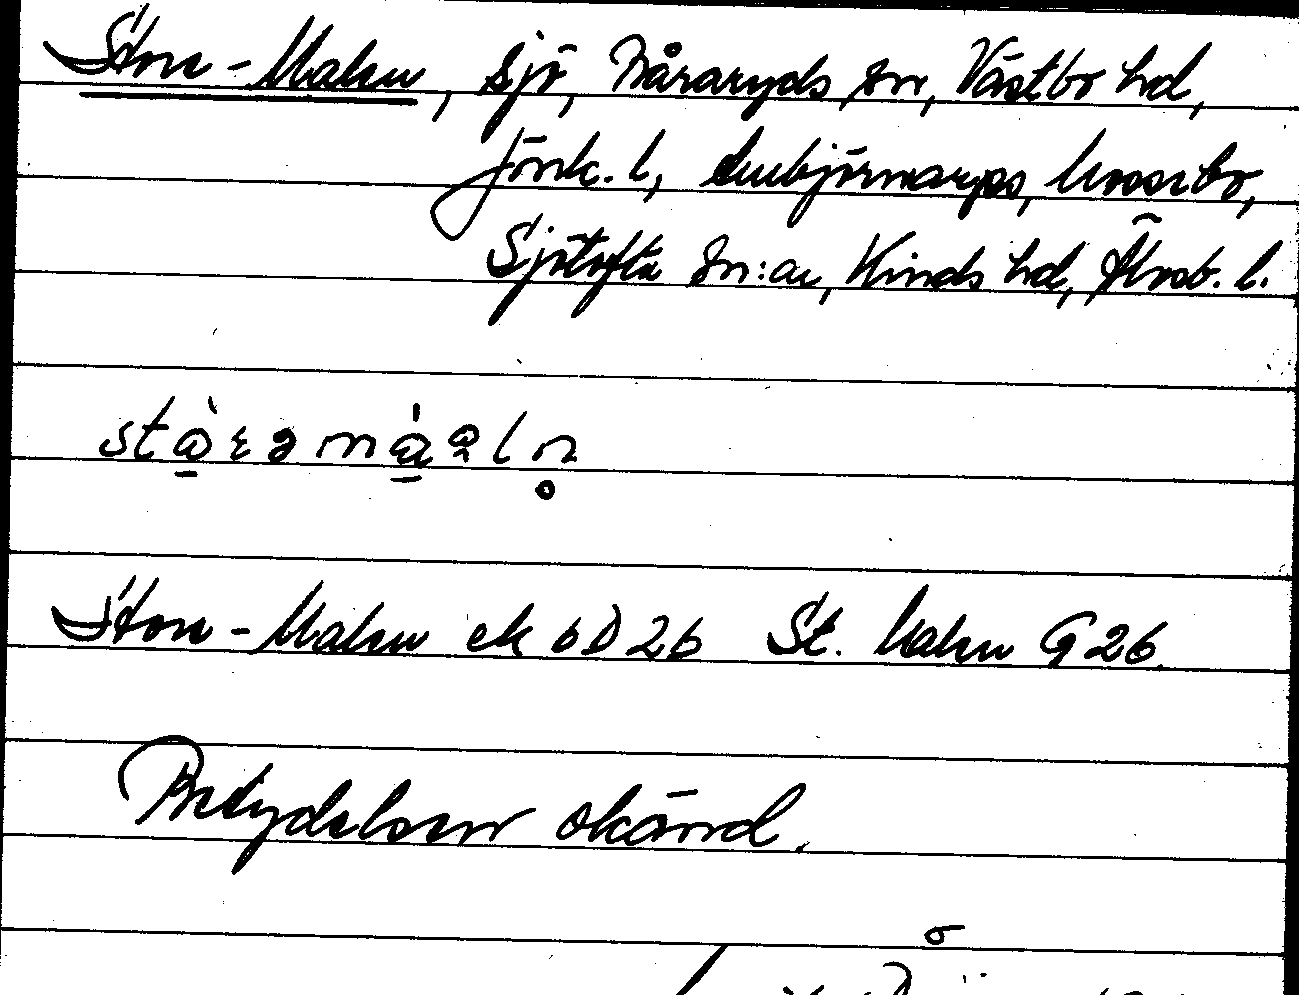 Stora-Malen, sjö, Båraryds sn, Västbo hd,
Jönk. l, Ambjörnarps, Mossebo,
Sjötofta sn:ar, Kinds hd, Älvsb. l.
Stora-Malen ek 6D 26 St. Malen G 26.
Betydelsen okänd.